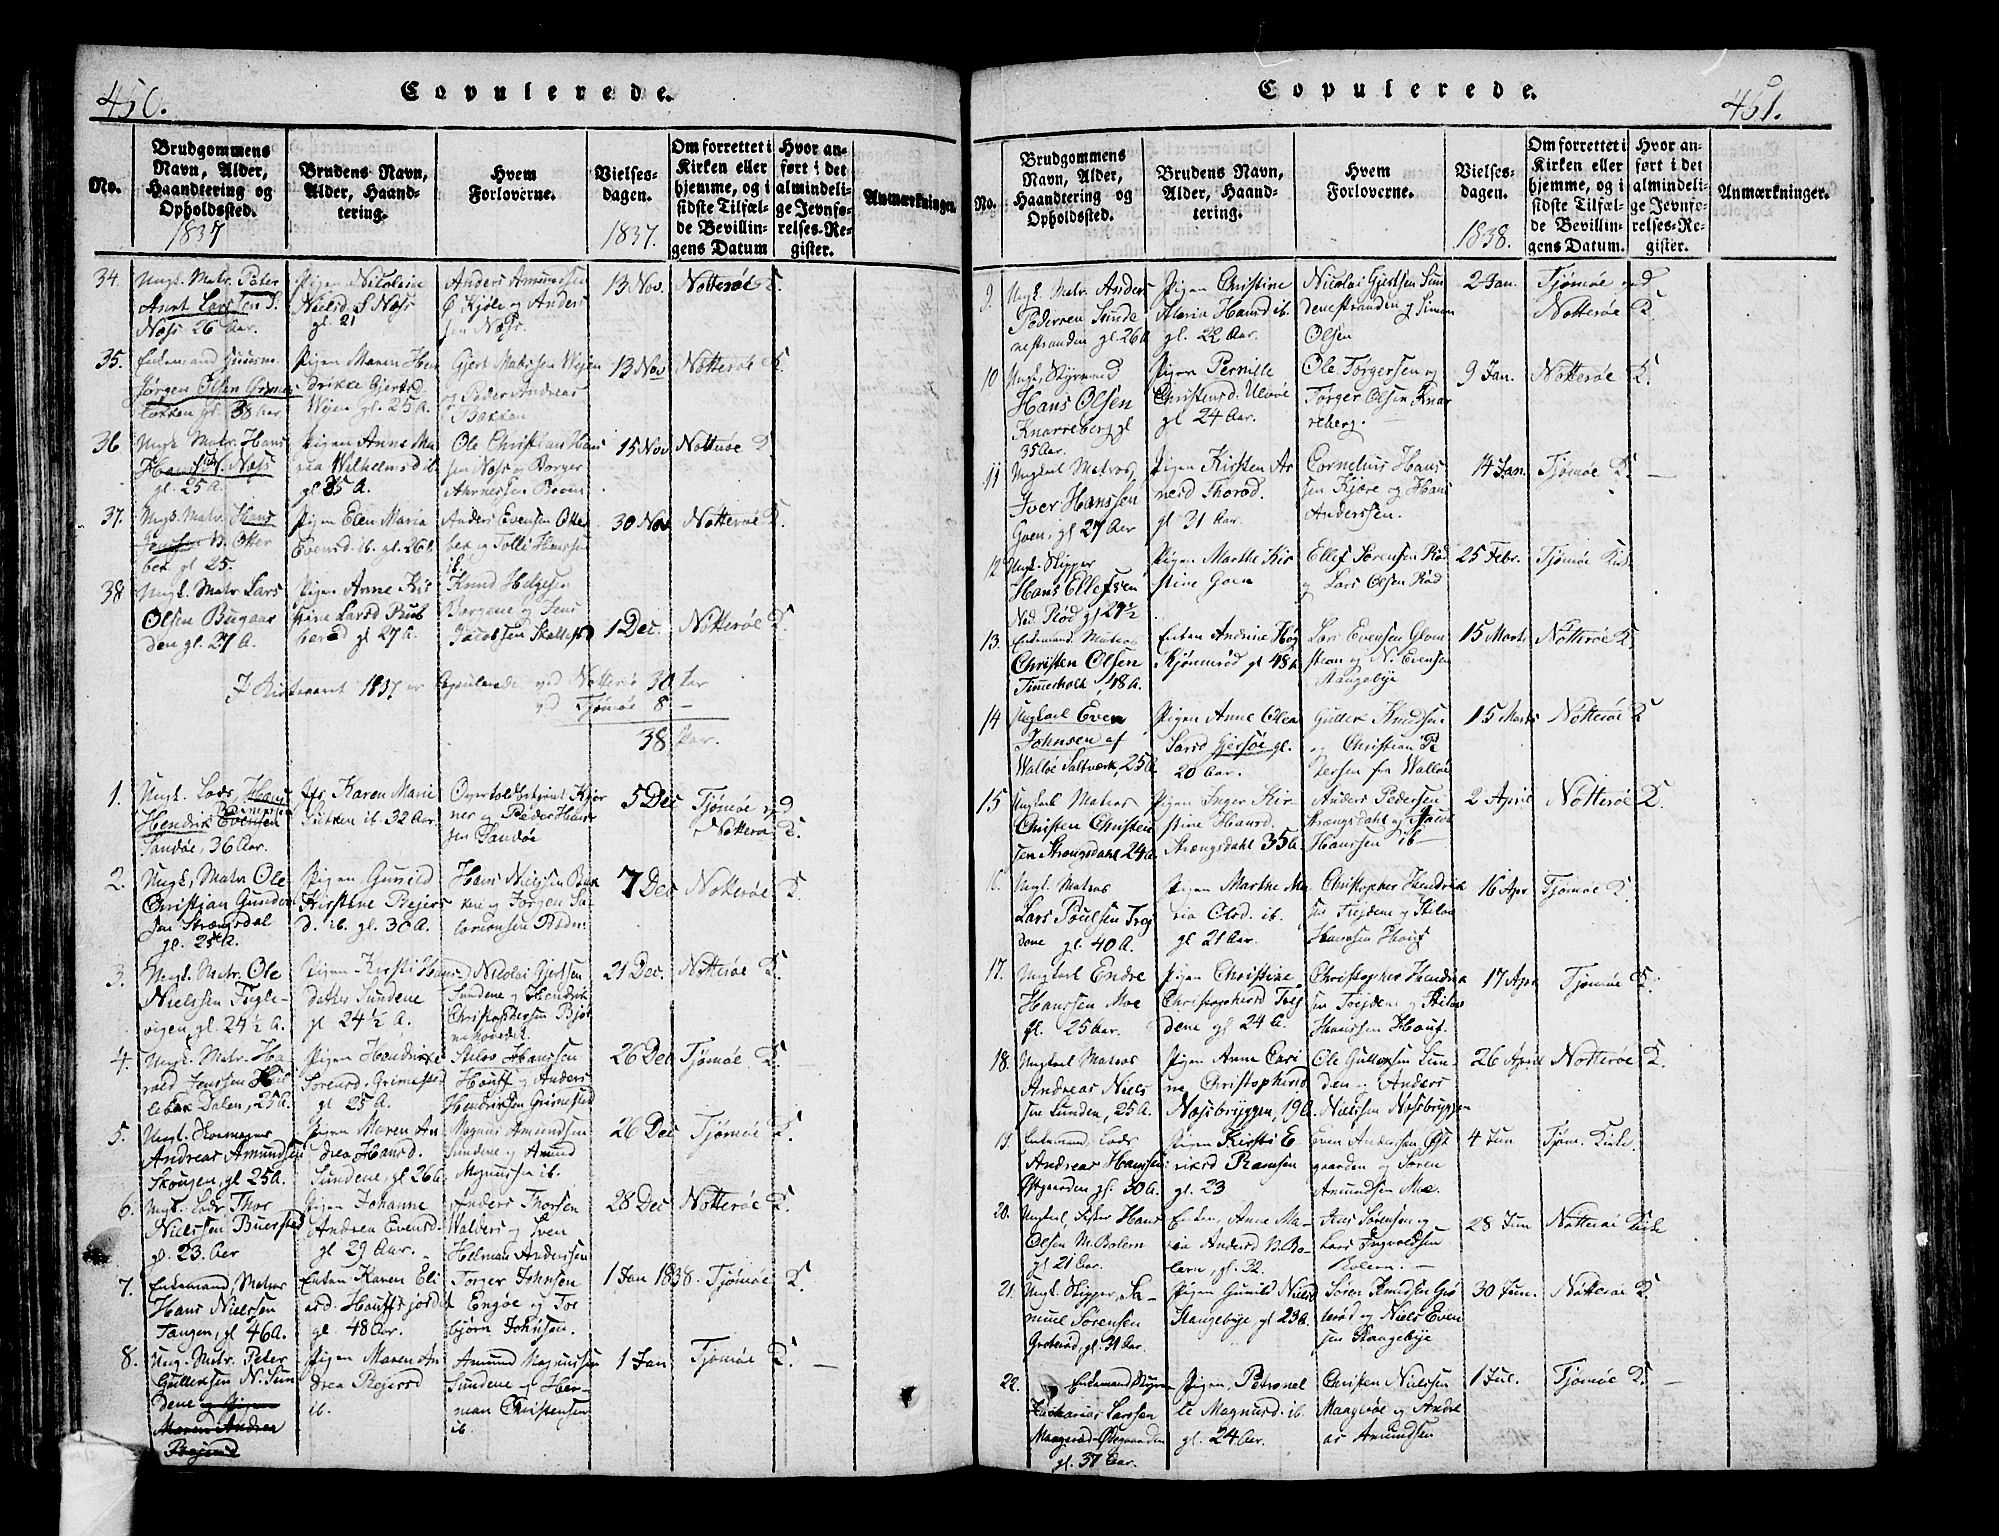 450.
Copulerede.
No.
Brudgommens
Navn, Alder,
Haandtering og
Opholdssted.
1837
Brudens Navn,
Alder, Haand-
tering.
Hvem
Forloverne.
Vielses-
dagen.
1837.
Om forrettet i
Kirken eller
hjemme, og i
sidste Tilfæl-
de Bevillin-
gens Datum
Hvor an-
ført i det
almindeli-
ge Jevnfø-
relses-Re-
gister.
Anmærkninger.
34.
Ungk. Matr. Peter
Næss 26 Aar.
Pigen Nicoleine
Nielsd S Næss
gl. 21
Anders Amundsen
Ø Kjøle og Anders
sen Næss.
13 Nov.
Notterøe K.
35.
Enkemand Huusm.
Jørgen Olsen
gl 38 aar
Pigen Maren Hen
drikke Gjertsd
Wejen gl. 25 A.
Gjert Mathssen Wejen
og Peder Andreas
Bakken
13 Nov
Notterøe K.
36
Ungk. Matr. Hans
N. Næss
gl. 25 A.
Pigen Anne Ma
ria Wilhelmsd ib
gl 35 A.
Ole Christian Hans
sen Næss og Borger
15 Nov
Notterøe K
37.
Ungk. Matr. Hans
Otter
bek gl 25.
Pigen Elen Maria
Evensd. ib. gl. 26
Anders Evensen Otter
bek og Tolle Hanssen
ib.
30 Nov
Notterøe K.
38
Ungk. Matr. Lars
Olsen Bugaar
den gl. 27 A.
Pigen Anne Kir
stine Larsd Bub
berød gl 27 A.
Knud Helgesen
Borgene og Jens
Jacobsen Skallestd
1 Dec.
Notterøe K.
I Kirkeaaret 1837 er Copulerede ved Notterø 30 Par
ved Tjømøe 8. —
38 Par.
1.
Ungk. Lods Hans
Hendrik Evensen
Sandøe, 36 Aar.
Karen Marie
ib. 32 Aar
Overtoldbetjent Kjør
ner og Peder Hans
sen Sandøe
5 Dec
Tjømøe ved
Notterø K.
2.
Ungk, Matr. Ole
Christian Gunder
sen Strængsdal
gl. 25 A.
Pigen Gunild
Kirstine Rejers
D. ib. gl. 30 A.
Hans Nielssen Bak
ken og Jørgen
7 Dec
Notterøe K.
3.
Ungk. Matr. Ole
Nielssen Fugle-
vigen gl. 24 ½ A.
Pigen Kirsti Hans
datter Sundene
gl 24 ½ A.
Nicolai Gjertsen
Sundene og Hendrik
Christophersen Bjør
nehovedet.
21 Dec.
Notterøe K.
4.
Ungk. Matr. Ha
rald Jenssen
lebak Dalen, 25 A.
Pigen Hendrikke
Sørensd. Grimestd
gl 25 A.
Stilov Hanssen
Houff og Anders
Hendriksen Grimestad
26 Dec
Tjømøe K.
5.
Ungk.
Andreas Amundsen
Skougen, gl 25 A.
Pigen Maren An
drea Hansd.
Sundene, gl 26
Magnus Amundsen
Sundene og Amund
Magnussen ib.
26 Dec
Tjømøe K.
6.
Ungk. Lods Thor
Nielssen Buerstad
gl. 23. Aar
Pigen Johanne
Andrea Evensd.
gl 29 Aar.
Anders Thorsen
Walbers og Sven
Helman Anderssen
28 Dec
Notterøe K.
7.
Enkemand, Matros
Hans Nielssen
Tangen, gl 46 A.
Enken Karen Eli
ard. Houffsjordet
gl. 48 Aar.
Torger Johnsen
Engøe og Tor
bjørn Johnsen.
1 Jan 1838.
Tjømøe K.
8.
Ungk. Matr. Peter
Gullixsen N. Sun
dene og Pigen
Maren Andrea
Rejersd
Pigen Maren An
drea Rejersd
ib.
Amund Magnussen
Sundene og Her-
man Christensen
ib
1 Jan
Tjømøe K. —
Copulerede.
451.
No.
Brudgommens
Navn, Alder,
Haandtering og
Opholdssted.
Brudens Navn,
Alder, Haand-
tering.
Hvem
Forloverne.
Vielses-
dagen.
1838.
Om forrettet i
Kirken eller
hjemme, og i
sidste Tilfæl-
de Bevillin-
gens Datum.
Hvor an-
ført i det
almindeli-
ge Jevnfø-
relses-Re-
gister.
Anmærkninger.
9.
Ungk. Matr. Anders
Pedersen Sunde
nestranden gl. 26 A
Pigen Christine
Maria Hansd ib.
gl. 22 Aar.
Nicolai Gjertsen Sun
denestranden og Simon
Olsen
2 Jan.
Tjømøe ved
Notterøe K.
10
Ungk, Styrmand
Hans Olsen
Knarreberg gl
35 Aar.
Pigen Pernille
Christensd. Ulvøe
gl 24 Aar.
Ole Torgersen og
Torger Olsen Knar
reberg. —
9 Jan.
Notterøe K.
11
Ungkarl Matros,
Iver Hanssen
Goen, gl 27 Aar
Pigen Kirsten Ar
nesd Thorød.
gl 31 Aar.
Cornelius Hans
sen Kjære og Hans
Anderssen.
14 Jan.
Tjømøe K. —
12
Ungk. Skipper
Hans Ellefsen
Ned. Rød gl 29½
Pigen Marthe Kir
stine Goen
Ellef Sørensen Rød
og Lars Olsen Rød
25 Febr.
Tjømøe Kirk
13.
Enkemand. Matros
Christen Olsen
Timmerholt, 48 A.
Enken Andrine Høg
Kjønnerød gl 48
Lars Evensen Glom
stean og N. Evensen
Stangebye
15 Marts
Nøtterøe K.
14
Ungkarl Even
Johnsen af
Walløe Saltværk, 25 A
Pigen Anne Olea
Larsd Gjersøe gl.
20 Aar.
Gullik Knudsen
og Christian Pe
tersen fra Walløe
15 Marts
Nøtterøe K
15
Ungkarl Matros
Christen Christen
sen Strængsdahl 24 A.
Pigen Inger Kir-
stine Hansd.
Strængsdahl 35 A.
Anders Pedersen
Strængsdahl og Jacob
Hanssen ib —
2 April
Nøtterøe K.
16.
Ungk. Matros
Lars Poulsen Trej
dene gl. 40 A.
Pigen Marthe Ma
ria Olsd. ib.
gl 21 Aar.
Christopher Hendrik
sen Trejdene og Stilov
Hanssen Houf
16 Apr
Tjømøe K.
17.
Ungkarl Endre
Hanssen Moe
gl. 25 Aar.
Pigen Christine,
Christophersd Trej
dene gl 24 A.
Christopher Hendrik
sen Trejdene og Stilov
Hanssen Houf.
17 Apr
Tjømøe K.
18.
Ungkarl Matros
Andreas Niels
sen Sunden, 25 A.
Pigen Anne Cari
ne, Christophersd
Næssbryggen, 19 A.
Ole Gulliksen Sun-
den og Anders
Nielssen Næssbryggen
26 April
Notterøe K
19
Enkemand, Lods
Andreas Hanssen
Østgaarden gl. 30 A.
Pigen Kirsti E
riksd Ramsøen
gl. 23
Even Anderssen Øst
gaarden og Søren
Amundsen Moe.
4 Jun
Tjøm. Kirke
20.
Ungkarl, Hans
Olsen M. Bolern
gl 21 Aar.
Enken, Anne Ma-
ria Andersd M. Bo-
lern, gl. 32.
Jens Sørensen og
Lars Ingvoldsen
Bolern. —
28 Jun
Notterøe Kirke
21.
Ungk. Skipper, Sa-
muel Sørensen
Grøterød, gl. 31 Aar.
Pigen Gunild Nielsd
Stangebye gl 23 A.
Søren Knudsen Grø
terød og Niels Even
sen Stangebye
30 Jun.
Nøtterøe K.
22.
Enkemand Styrm
Zacharias Larssen
Maagerøe Østgaarden
gl. 37 Aar.
Pigen, Petronel
le Magnusd. ib.
gl. 24 Aar.
Christen Nielssen
Maagerøe og Andre
as Amundsen
1 Jul.
Tjømøe K. —